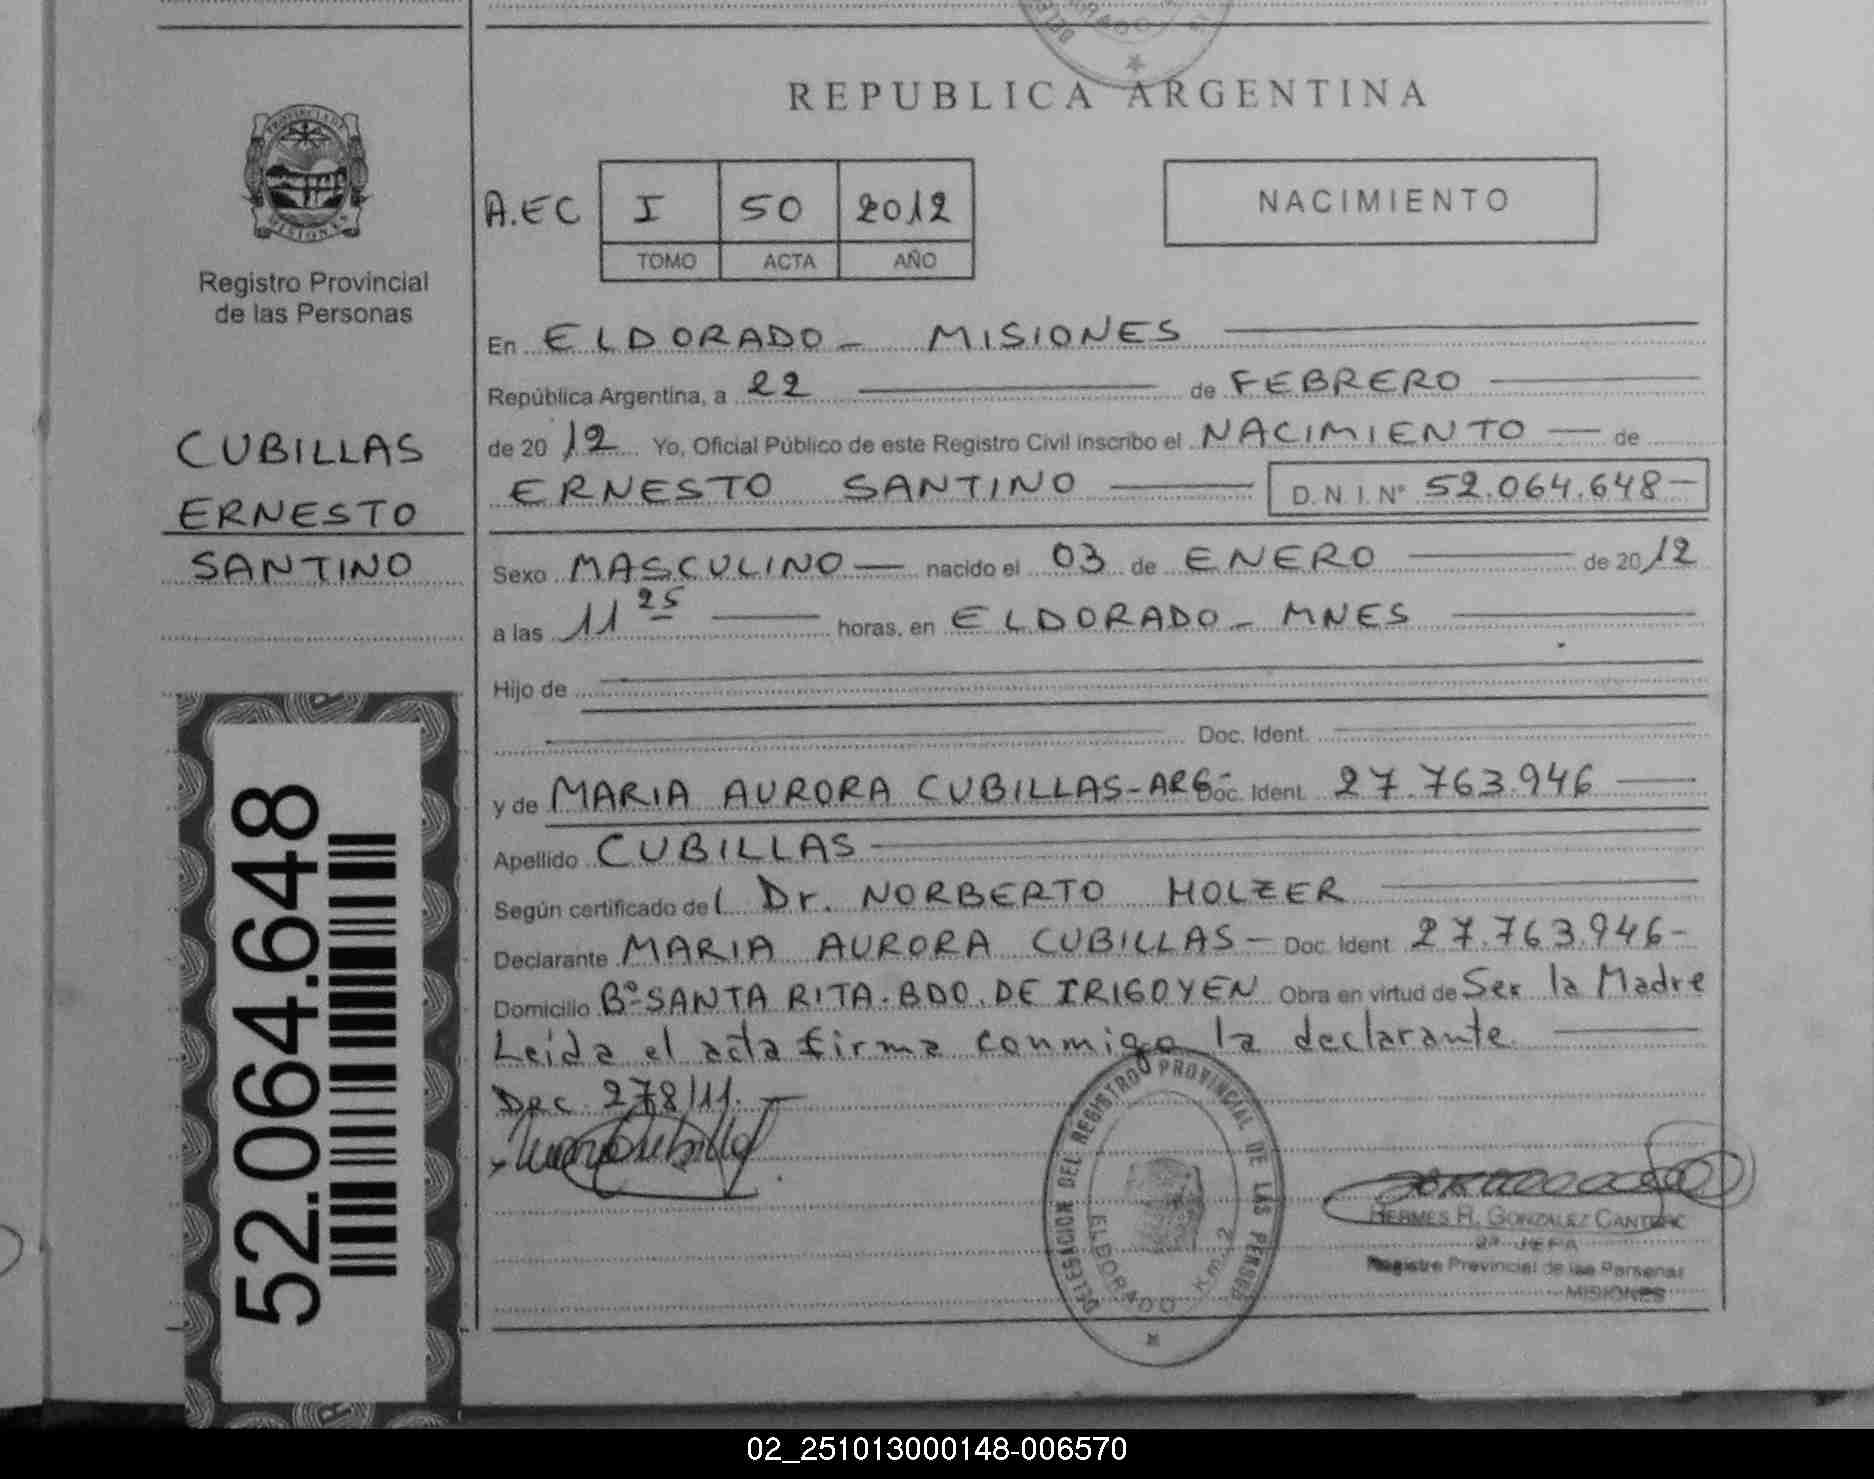 REPUBLICA ARGENTINA
PROVINCIA DE
MISIONES
Registro Provincial
de las Personas
CUBILLAS
ERNESTO
SANTINO
52.064.648
A.EC I 50 2012
TOMO ACTA AÑO
NACIMIENTO
En ELDORADO - MISIONES
República Argentina, a 22 de FEBRERO
de 2012 Yo, Oficial Público de este Registro Civil inscribo el NACIMIENTO de
ERNESTO SANTINO D.N.I.Nº 52.064.648-
Sexo MASCULINO nacido el 03 de ENERO de 2012
a las 11 25 horas, en ELDORADO - MNES
Hijo de
Doc. Ident.
y de MARIA AURORA CUBILLAS-ARG- Doc. Ident. 27.763.946
Apellido CUBILLAS
Según certificado del Dr. NORBERTO HOLZER
Declarante MARIA AURORA CUBILLAS- Doc. Ident. 27.763.946-
Domicilio Bº SANTA RITA. BDO. DE IRIGOYEN Obra en virtud de Ser la Madre
Leída el acta firma conmigo la declarante
Dec. 278/11.
DELEGACION DEL REGISTRO PROVINCIAL DE LAS PERSONAS
ELDORADO Km. 2
HERMES R. GONZALEZ
2º JEFA
Registro Provincial de las Personas
MISIONES
02_251013000148-006570